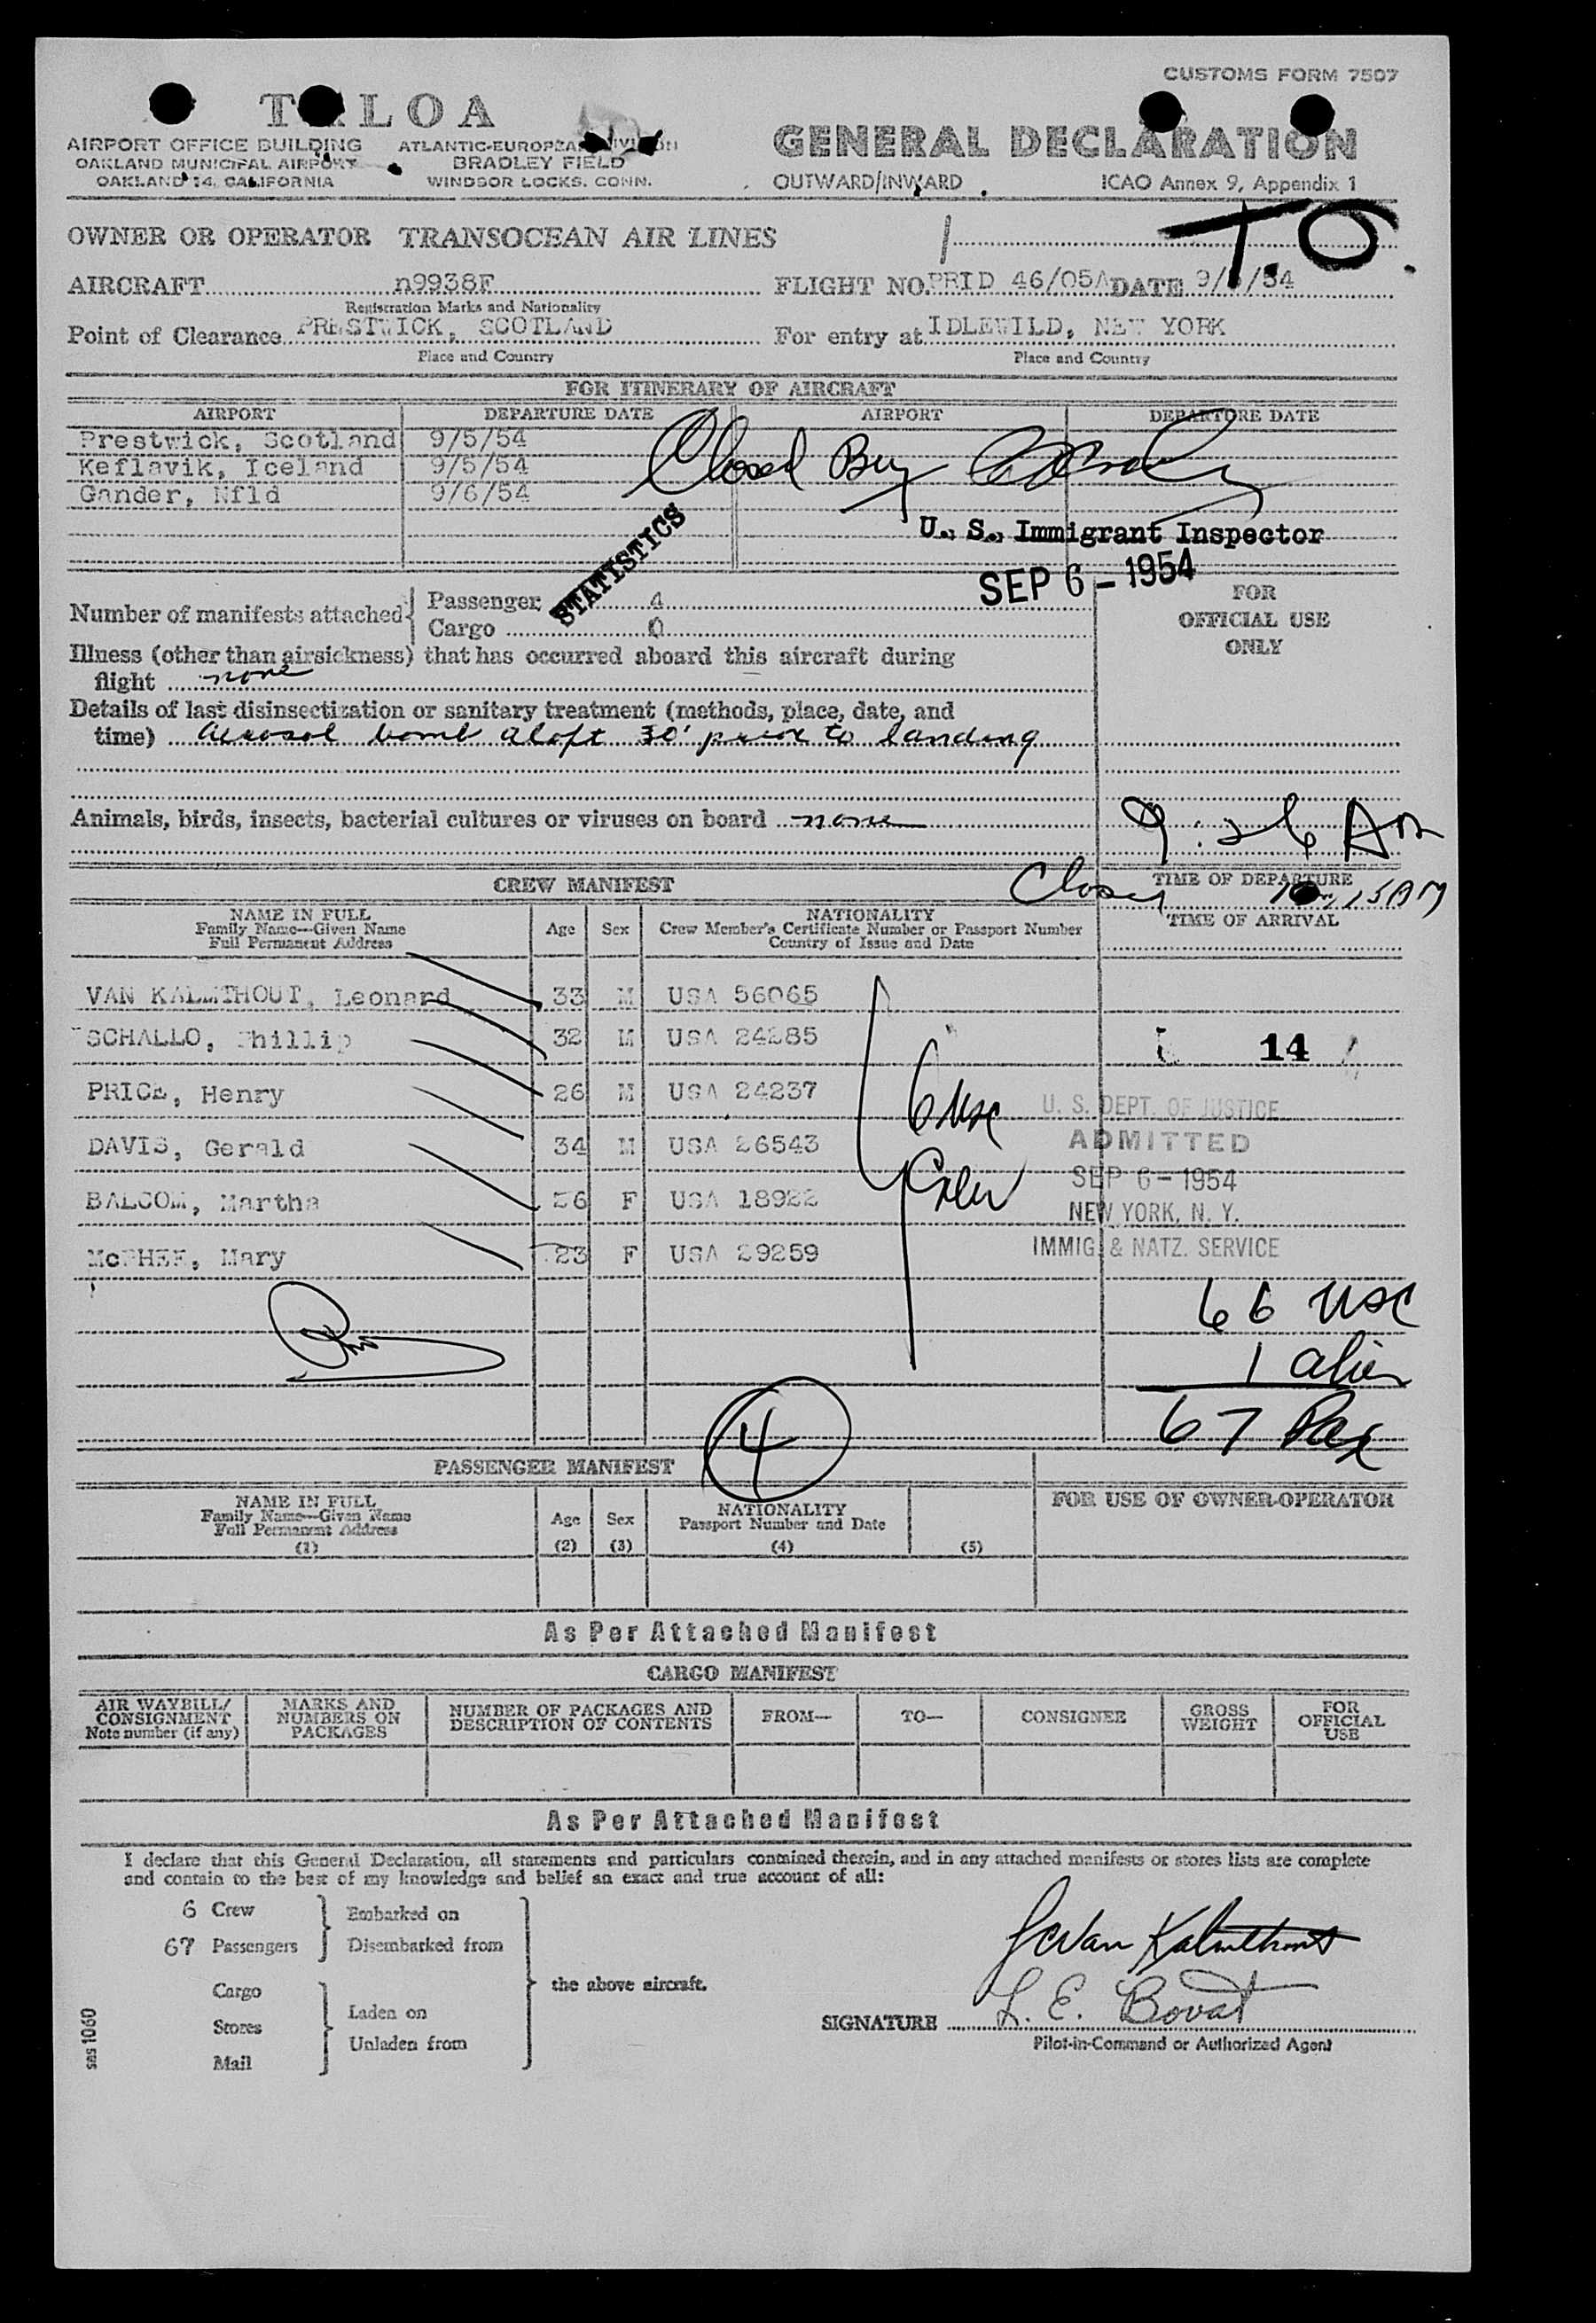 CUSTOMS FORM 7507
TALOA
AIRPORT OFFICE BUILDING
OAKLAND MUNICIPAL AIRPORT
OAKLAND 14, CALIFORNIA
ATLANTIC-EUROPEAN DIVISION
BRADLEY FIELD
WINDSOR LOCKS, CONN.
GENERAL DECLARATION
OUTWARD/INWARD ICAO Annex 9, Appendix 1
T.O.
OWNER OR OPERATOR TRANSOCEAN AIR LINES
AIRCRAFT n9938F FLIGHT NO. PRID 46/05A DATE 9/ /54
Registration Marks and Nationality
Point of Clearance PRESTWICK, SCOTLAND For entry at IDLEWILD, NEW YORK
Place and Country Place and Country
FOR ITINERARY OF AIRCRAFT
AIRPORT DEPARTURE DATE AIRPORT DEPARTURE DATE
Prestwick, Scotland 9/5/54
Keflavik, Iceland 9/5/54
Gander, Nfld 9/6/54
Closed By
U. S. Immigrant Inspector
SEP 6 - 1954
STATISTICS
Number of manifests attached
Passenger 4
Cargo 0
FOR
OFFICIAL USE
ONLY
Illness (other than airsickness) that has occurred aboard this aircraft during
flight none
Details of last disinsectization or sanitary treatment (methods, place, date, and
time) Aerosol bomb aloft 30' prior to landing
Animals, birds, insects, bacterial cultures or viruses on board none
9:26 Am
CREW MANIFEST
TIME OF DEPARTURE
TIME OF ARRIVAL
NAME IN FULL
Family Name—Given Name
Full Permanent Address
Age Sex
NATIONALITY
Crew Member's Certificate Number or Passport Number
Country of Issue and Date
VAN KALMTHOUT, Leonard 33 M USA 56065
SCHALLO, Phillip 32 M USA 24285
PRICE, Henry 26 M USA 24237
DAVIS, Gerald 34 M USA 26543
BALCOM, Martha 26 F USA 18922
McPHEE, Mary 23 F USA 29259
6 USC
Crew
14
U. S. DEPT. OF JUSTICE
ADMITTED
SEP 6 - 1954
NEW YORK, N. Y.
IMMIG. & NATZ. SERVICE
66 USC
1 alien
67 Pax
4
PASSENGER MANIFEST
NAME IN FULL
Family Name—Given Name
Full Permanent Address
(1)
Age
(2)
Sex
(3)
NATIONALITY
Passport Number and Date
(4)
(5)
FOR USE OF OWNER-OPERATOR
As Per Attached Manifest
CARGO MANIFEST
AIR WAYBILL/
CONSIGNMENT
Note number (if any)
MARKS AND
NUMBERS ON
PACKAGES
NUMBER OF PACKAGES AND
DESCRIPTION OF CONTENTS
FROM—
TO—
CONSIGNEE
GROSS
WEIGHT
FOR
OFFICIAL
USE
As Per Attached Manifest
I declare that this General Declaration, all statements and particulars contained therein, and in any attached manifests or stores lists are complete
and contain to the best of my knowledge and belief an exact and true account of all:
6 Crew
67 Passengers
Embarked on
Disembarked from
Cargo
Stores
Mail
Laden on
Unladen from
the above aircraft.
Van Kalmthout
SIGNATURE L. E. Bovat
Pilot-in-Command or Authorized Agent
sas 1060